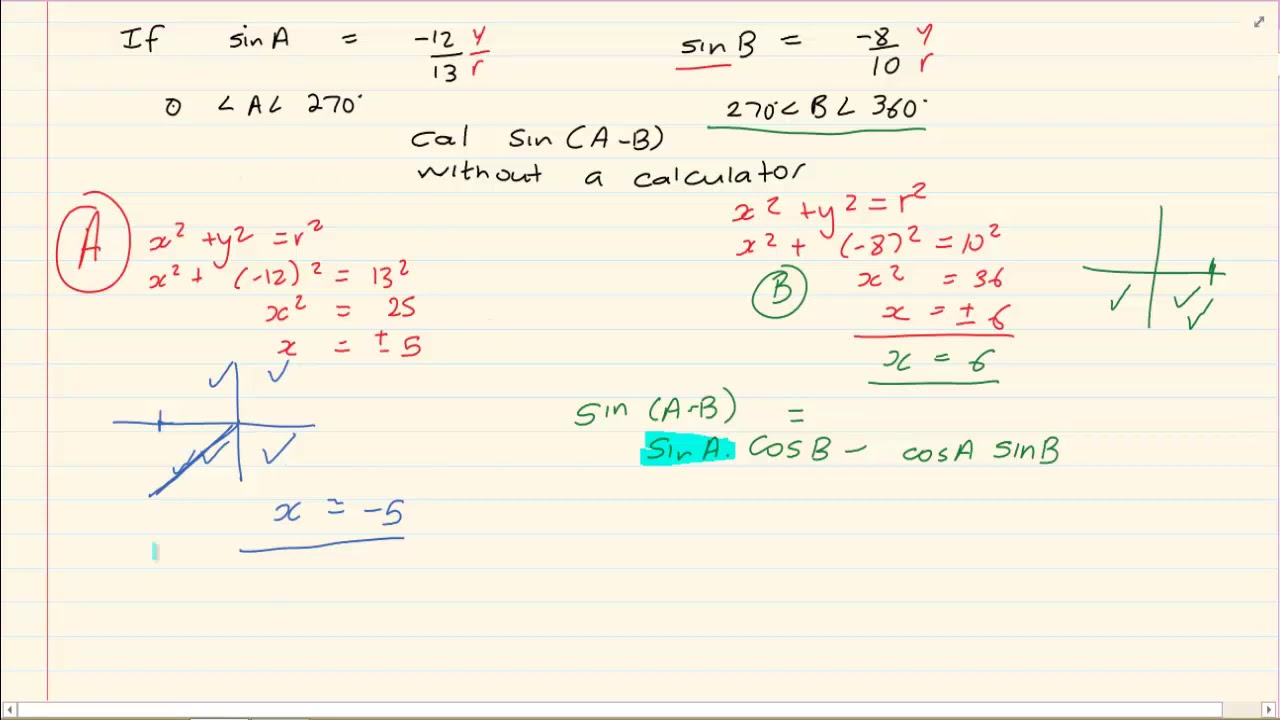 If sin A = -12/13 y/r
0 < A < 270°
sin B = -8/10 y/r
270° < B < 360°
cal sin (A - B)
without a calculator
A
x² + y² = r²
x² + (-12)² = 13²
x² = 25
x = ± 5
x = -5
x² + y² = r²
x² + (-8)² = 10²
B
x² = 36
x = ± 6
x = 6
sin (A-B) =
sin A. cos B - cos A sin B